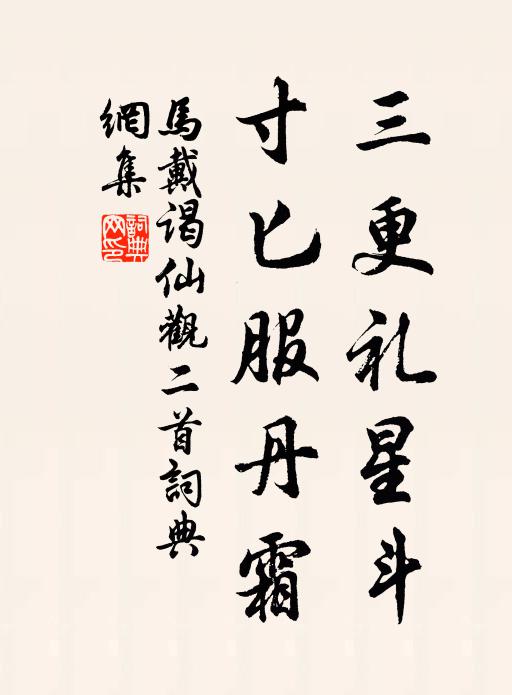 三更礼星斗
寸匕服丹霜
馬戴谒仙觀二首詞典
網集
詞典
网印